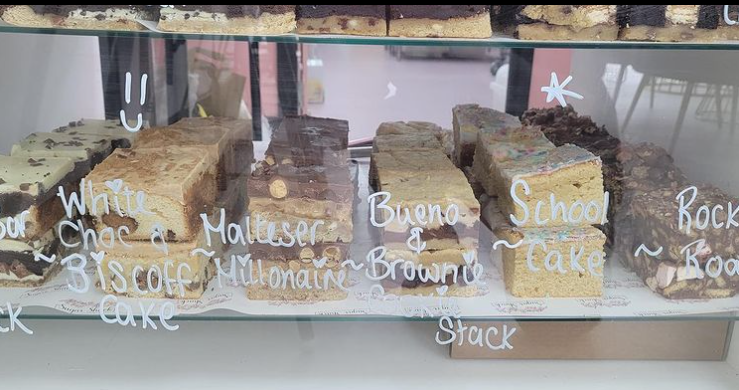 White
Choc &
Biscoff
Cake
~ Malteser
Millonaire ~
Bueno
&
Brownie
Cookie
Stack
~ School
Cake
~ Rock
Roa